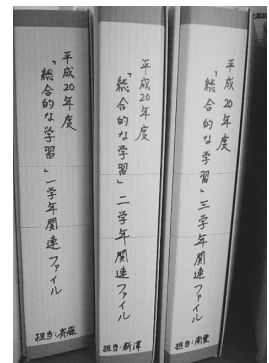 平成20年度
「総合的な学習」一学年関連ファイル
担当:斉藤
平成20年度
「総合的な学習」二学年関連ファイル
担当:新澤
平成20年度
「総合的な学習」三学年関連ファイル
担当:南雲